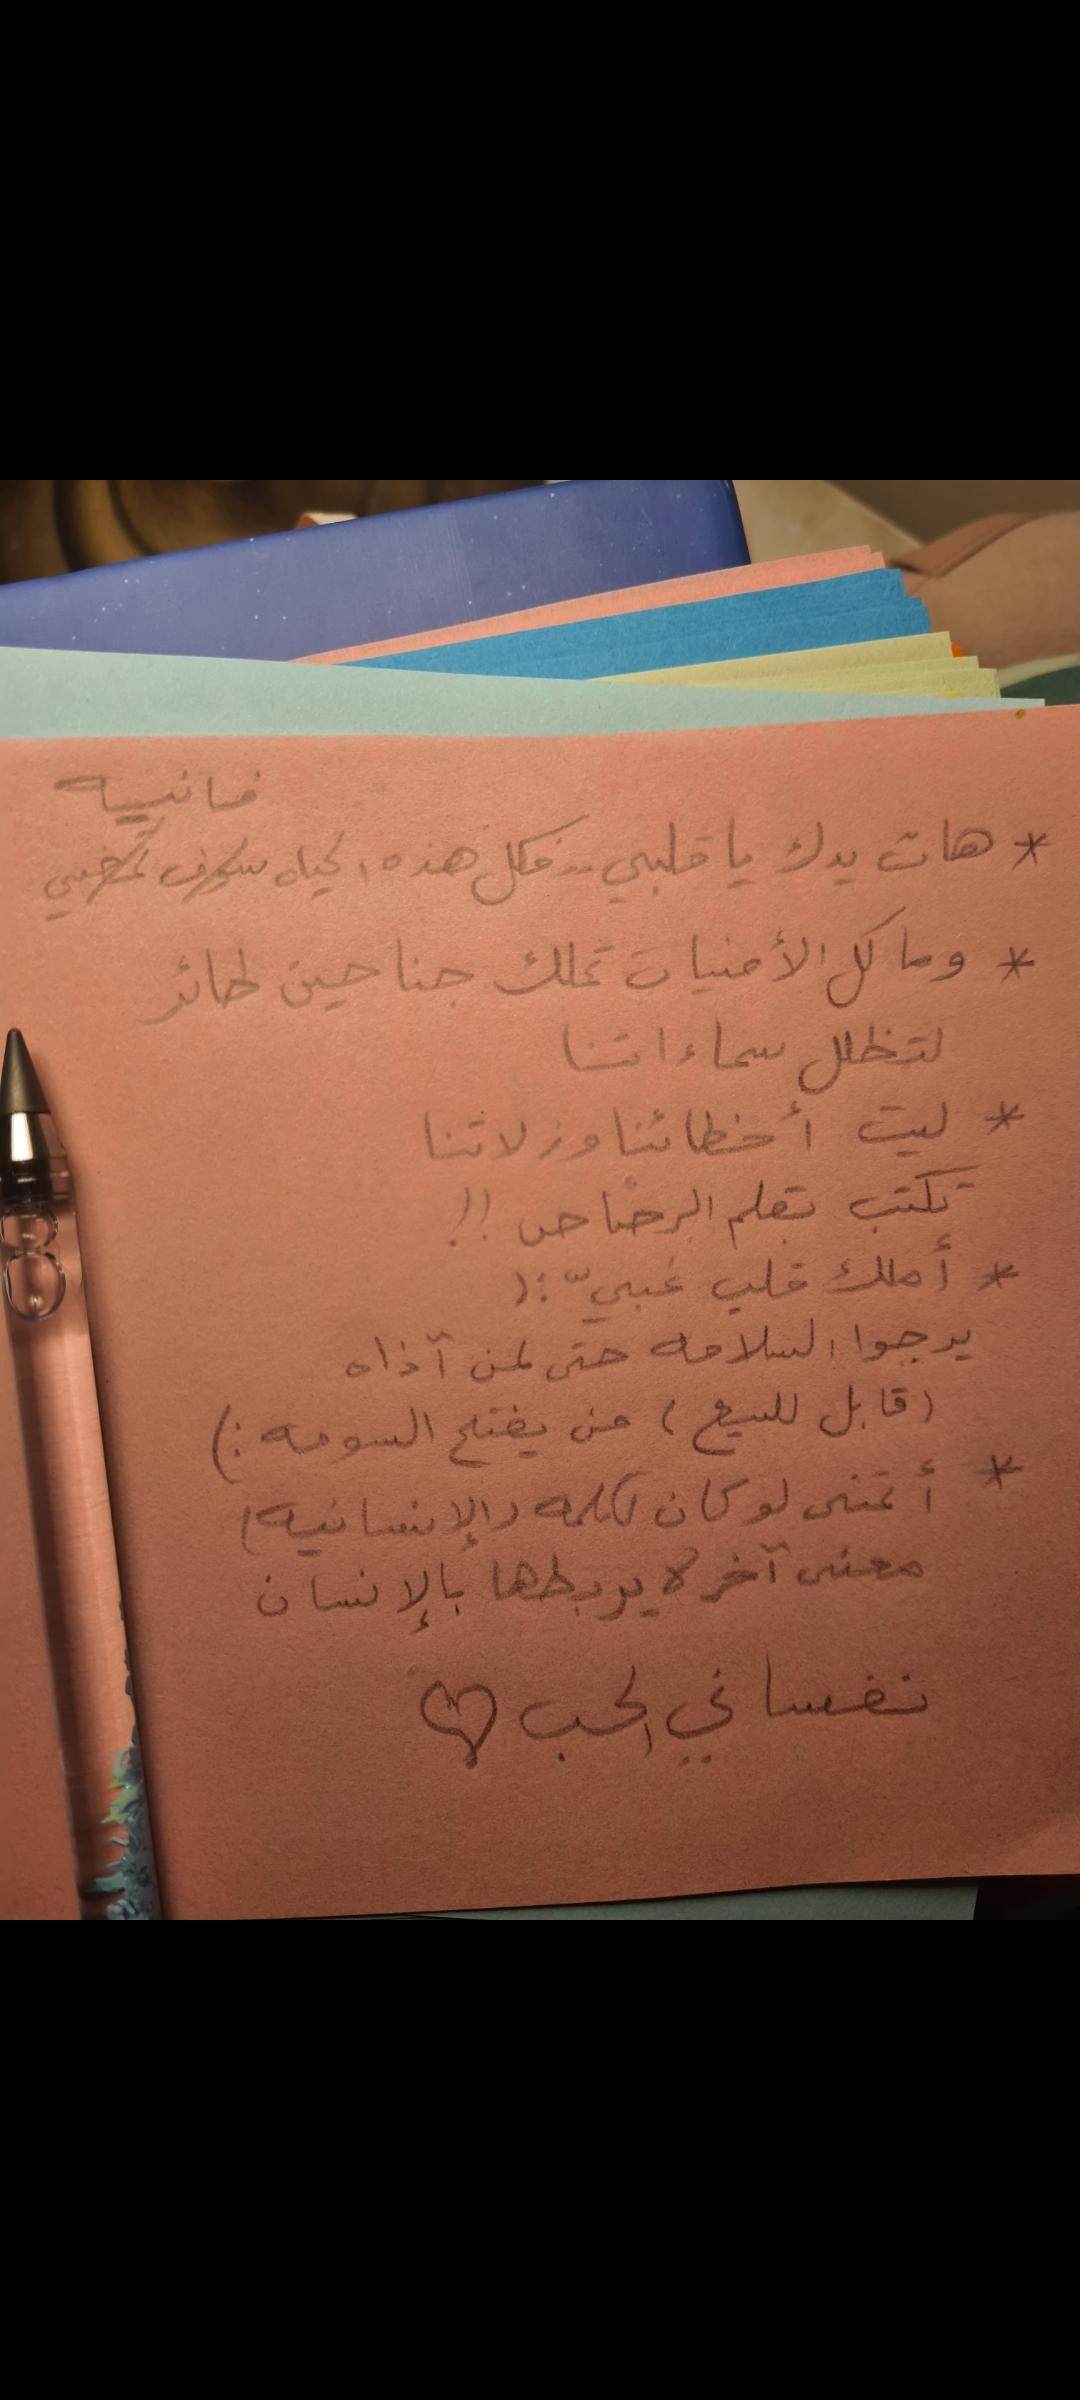 فانيه
* هات يدك يا قلبي .. فكل هذه الحياه سوف تمضي
* وما كل الأمنيات تملك جناحين طائر
لتظلل سماءاتنا
* ليت أخطائنا وزلاتنا
تكتب بقلم الرصاص !!
* أملك قلب غبيّ :(
يرجوا السلامه حتى لمن آذاه
(قابل للبيع) من يفتح السومه :)
* أتمنى لو كان لكلمة (الإنسانيه)
معنى آخر لا يربطها بالإنسان
نفساني الحب ♡